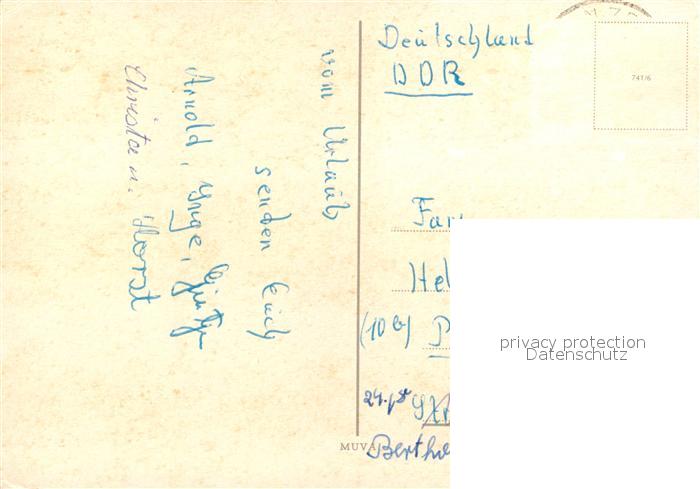 vom Urlaub
senden Euch
Arnold, Inge,
Christa u. Horst
Deutschland
DDR
741/6
Fam
Hel
(10b) P
24. 
MUVA
Berth
privacy protection
Datenschutz